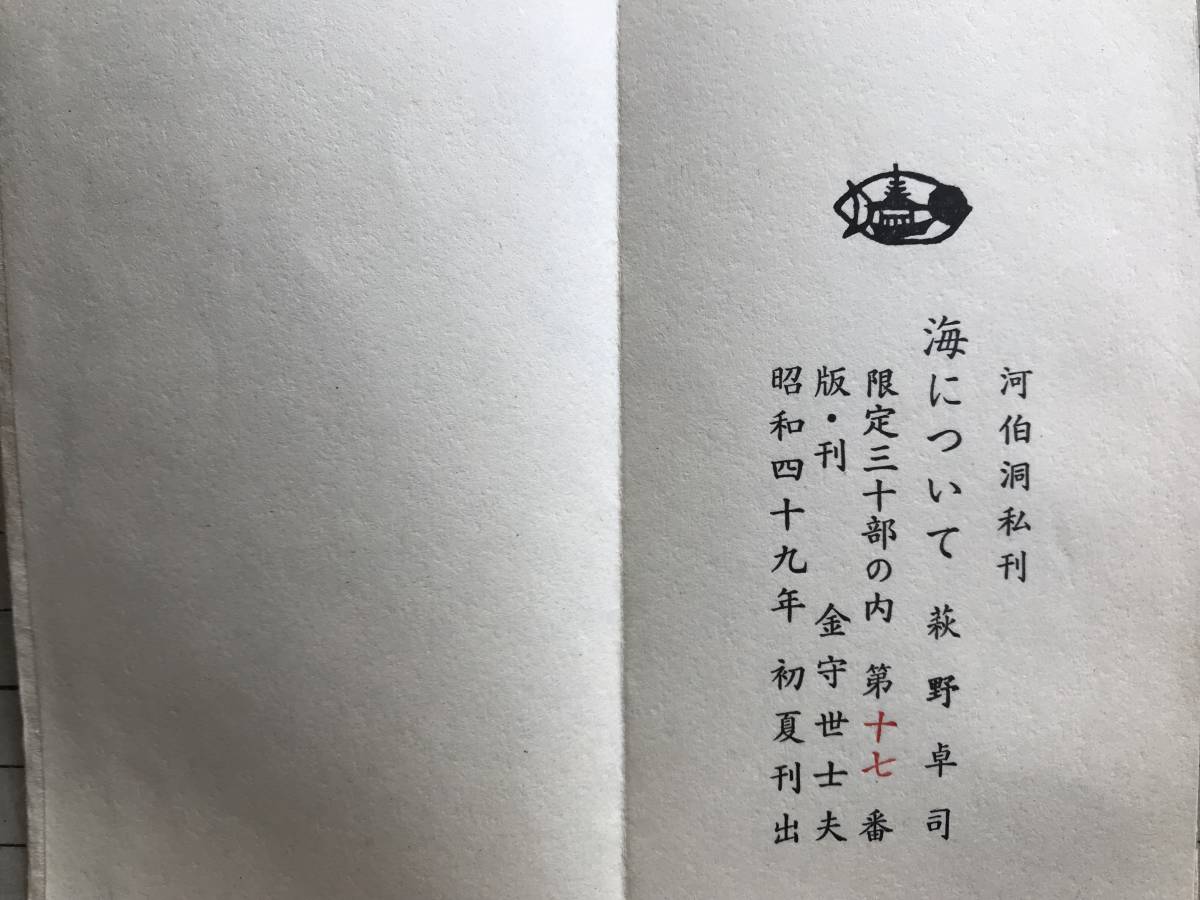 河伯洞私刊
海について 萩野卓司
限定三十部の内 第十七番
版・刊 金守世士夫
昭和四十九年 初夏刊出